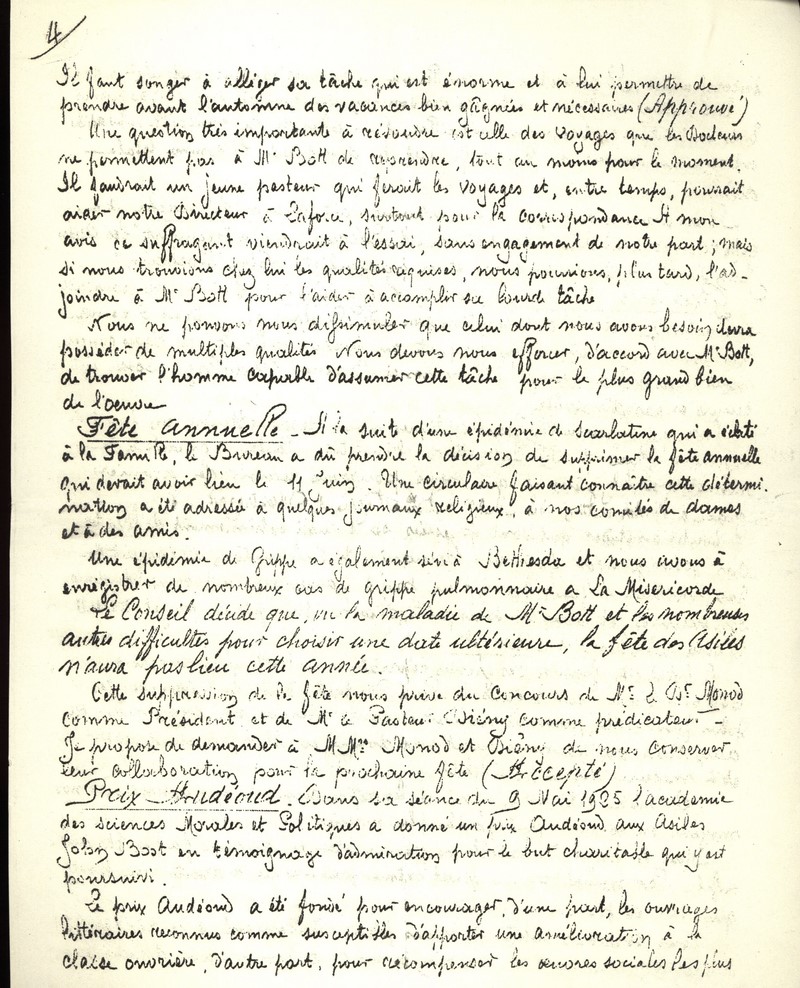 4
Il faut songer à alléger sa tâche qui est énorme et à lui permettre de
prendre avant l'automne des vacances bien gâgnées et nécessaires (Approuvé)
Une question très importante à résoudre est celle des Voyages que les Docteurs
ne permettent pas à Mr Bott de reprendre, tout au moins pour le moment.
Il faudrait un jeune pasteur qui ferait les voyages et, entre temps, pourrait
aider notre Directeur à Laforce, surtout pour la correspondance A mon
avis ce suffragant viendrait à l'essai, sans engagement de notre part ; mais
si nous trouvions chez lui les qualités requises, nous pourrions, plus tard, l'ad-
joindre à Mr Bott pour l'aider à accomplir sa lourde tâche
Nous ne pouvons nous dissimuler que celui dont nous avons besoin devra
posséder de multiples qualités Nous devons nous efforcer, d'accord avec Mr Bott,
de trouver l'homme capable d'assumer cette tâche pour le plus grand bien
de l'oeuvre
Fête annuelle - A la suite d'une épidémie de scarlatine qui a éclaté
à la Famille, le Bureau a dû prendre la décision de supprimer la fête annuelle
qui devait avoir lieu le 11 Juin. Une circulaire faisant connaître cette détermi-
nation a été adressée à quelques journaux religieux, à nos comités de dames
et à des amis.
Une épidémie de Grippe a également sévi à Béthesda et nous avons à
enregistrer de nombreux cas de grippe pulmonnaire a La Miséricorde
Le Conseil décide que, vu la maladie de Mr Bott et les nombreuses
autres difficultés pour choisir une date ultérieure, la fête des Asiles
n'aura pas lieu cette année.
Cette suppression de la fête nous prive du Concours de Mr le Dr Monod
comme Président et de Mr le Pasteur Biény comme prédicateur -
Je propose de demander à MMrs Monod et Biény de nous conserver
leur collaboration pour la prochaine fête (Accepté)
Prix Audéoud. Dans sa séance du 9 Mai 1925 l'académie
des sciences Morales et Politiques a donné un prix Audéoud aux Asiles
John Bost en témoignage d'admiration pour le but charitable qui y est
poursuivi.
Le prix Audéoud a été fondé pour encourager, d'une part, les ouvrages
littéraires reconnus comme susceptibles d'apporter une amélioration à la
classe ouvrière, d'autre part, pour récompenser les oeuvres sociales les plus